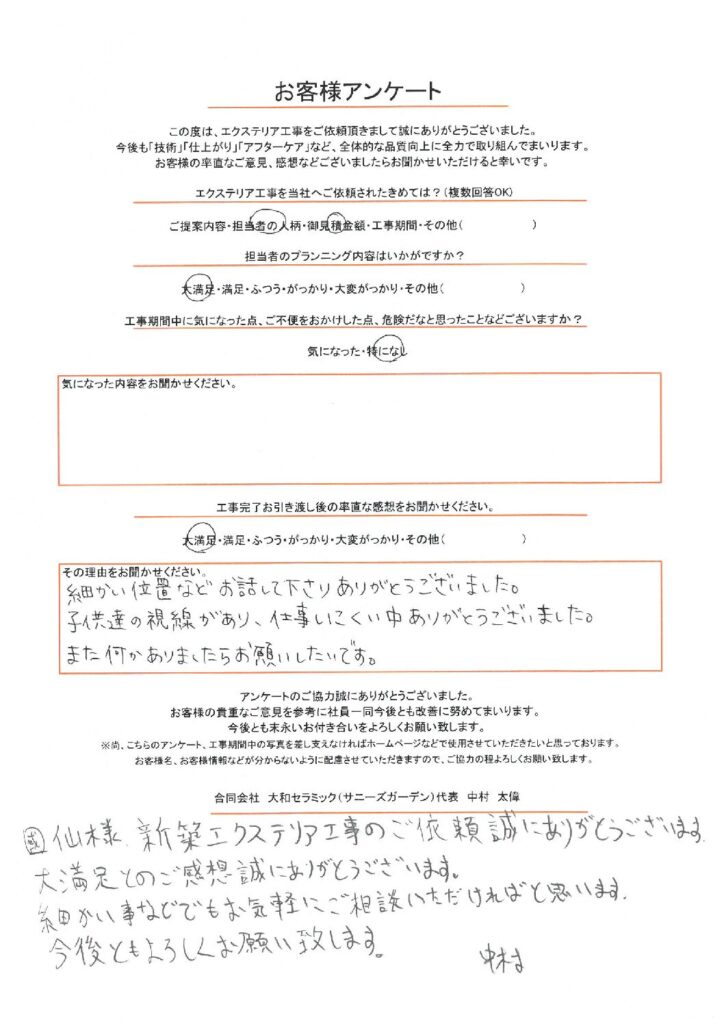 お客様アンケート
この度は、エクステリア工事をご依頼頂きまして誠にありがとうございました。
今後も「技術」「仕上がり」「アフターケア」など、全体的な品質向上に全力で取り組んでまいります。
お客様の率直なご意見、感想などございましたらお聞かせいただけると幸いです。
エクステリア工事を当社へご依頼されたきめては？(複数回答OK)
ご提案内容・担当者の人柄・御見積金額・工事期間・その他( )
担当者のプランニング内容はいかがですか？
大満足・満足・ふつう・がっかり・大変がっかり・その他( )
工事期間中に気になった点、ご不便をおかけした点、危険だなと思ったことなどございますか？
気になった・特になし
気になった内容をお聞かせください。
工事完了お引き渡し後の率直な感想をお聞かせください。
大満足・満足・ふつう・がっかり・大変がっかり・その他( )
その理由をお聞かせください。
細かい位置など お話して下さりありがとうございました。
子供達の視線があり、仕事しにくい中ありがとうございました。
また何かありましたらお願いしたいです。
アンケートのご協力誠にありがとうございました。
お客様の貴重なご意見を参考に社員一同今後とも改善に努めてまいります。
今後とも末永いお付き合いをよろしくお願い致します。
※尚、こちらのアンケート、工事期間中の写真を差し支えなければホームページなどで使用させていただきたいと思っております。
お客様名、お客様情報などが分からないように配慮させていただきますので、ご協力の程よろしくお願い致します。
合同会社 大和セラミック(サニーズガーデン)代表 中村 太偉
仙様 新築エクステリア工事のご依頼誠にありがとうございます
大満足とのご感想誠にありがとうございます。
細かい事などでもお気軽にご相談いただければと思います.
今後ともよろしくお願い致します。
中村